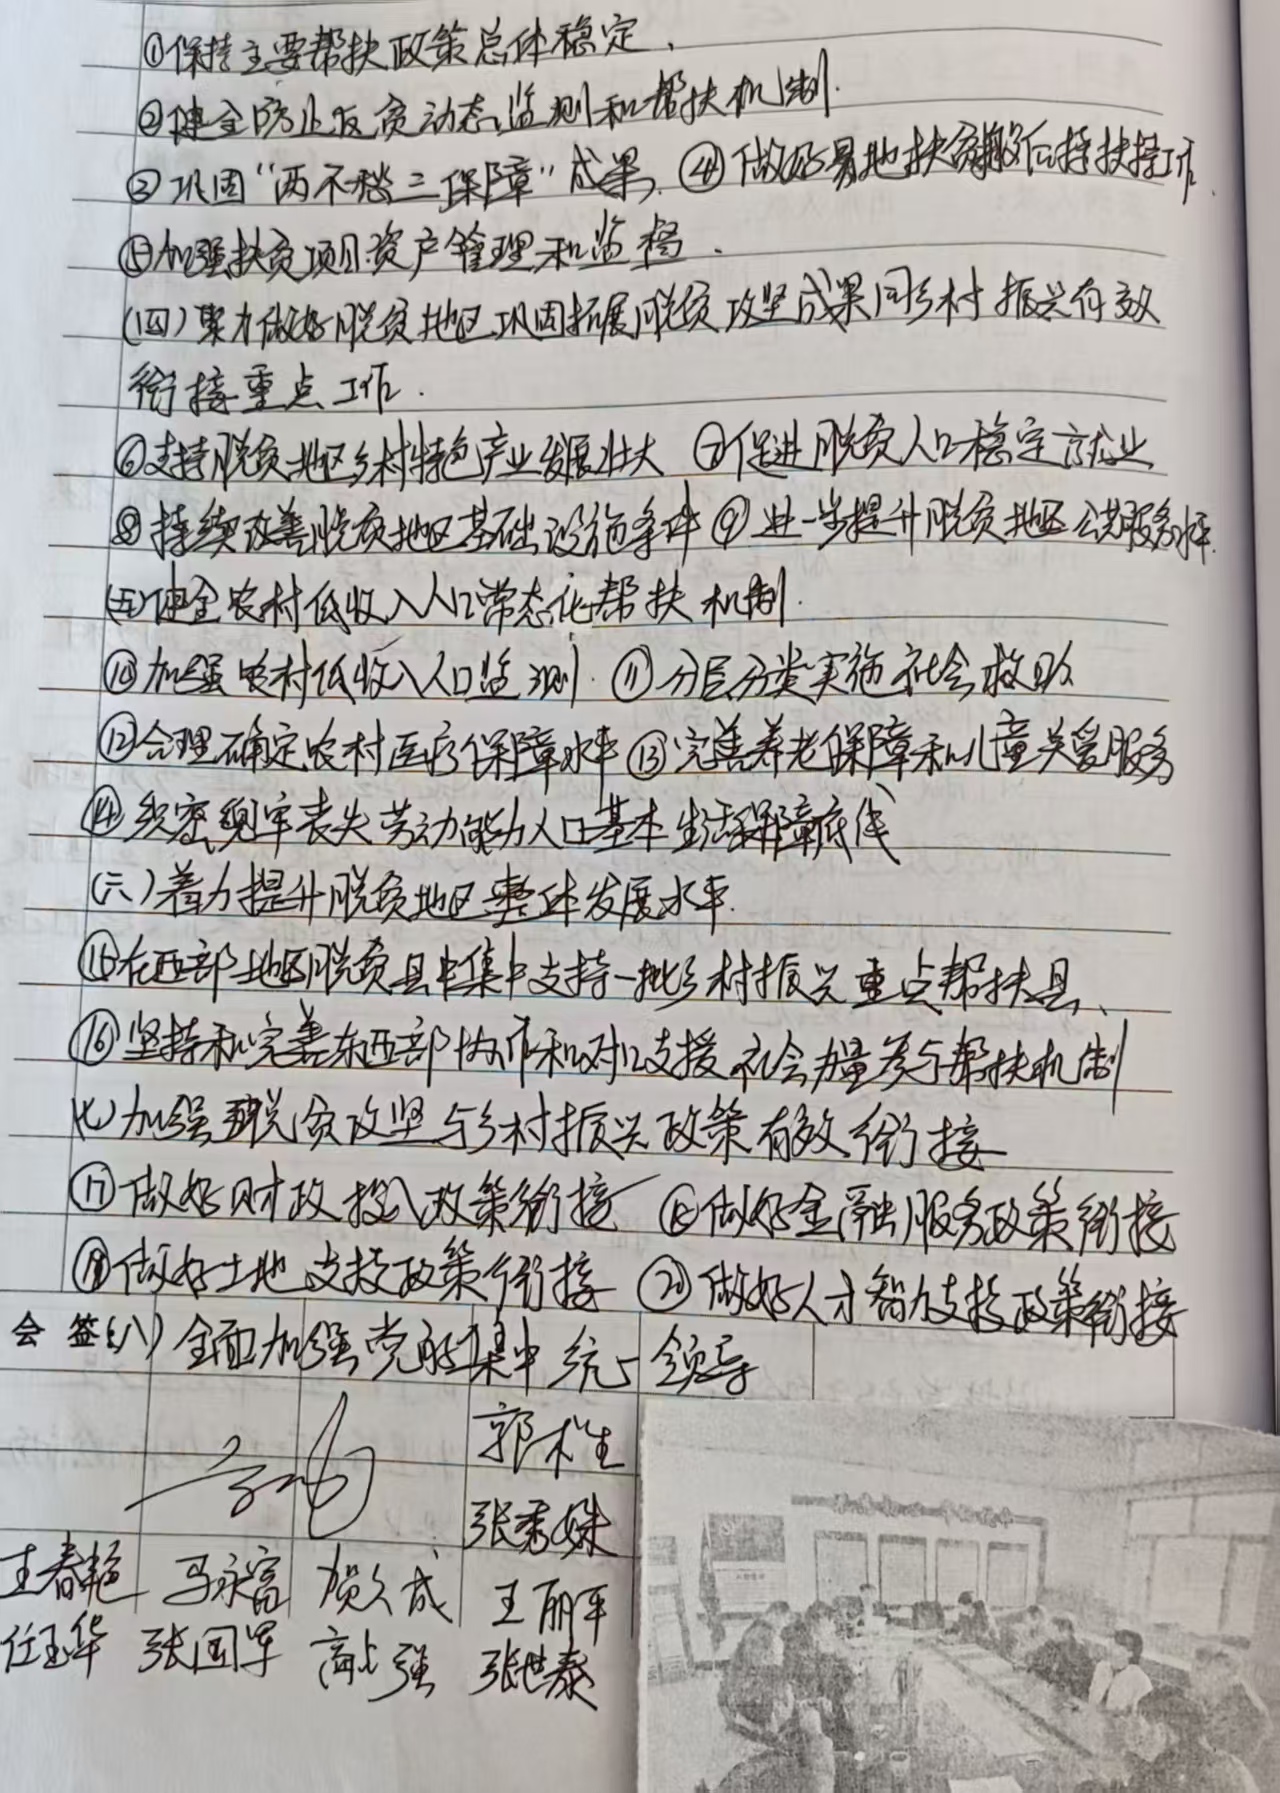 ①保持主要帮扶政策总体稳定、
②健全防止返贫动态监测和帮扶机制.
③巩固“两不愁三保障”成果. ④做好易地扶贫搬后持扶持工作.
⑤加强扶贫项目资产管理和监督.
(四)聚力做好脱贫地区巩固拓展脱贫攻坚成果同乡村振兴有效
衔接重点工作.
⑥支持脱贫地区乡村特色产业发展壮大 ⑦促进脱贫人口稳定就业
⑧持续改善脱贫地区基础设施条件 ⑨进一步提升脱贫地区公共服务水平.
(五)健全农村低收入人口常态化帮扶机制.
⑩加强农村低收入人口监测. ⑪分层分类实施社会救助
⑫合理确定农村医疗保障水平 ⑬完善养老保障和儿童关爱服务
⑭织密兜牢丧失劳动能力人口基本生活保障底线
(六)着力提升脱贫地区整体发展水平.
⑮在西部地区脱贫县中集中支持一批乡村振兴重点帮扶县、
⑯坚持和完善东西部协作和对口支援、社会力量参与帮扶机制
(七)加强脱贫攻坚与乡村振兴政策有效衔接
⑰做好财政投入政策衔接 ⑱做好金融服务政策衔接
⑲做好土地支持政策衔接 ⑳做好人才智力支持政策衔接
会 签 (八)全面加强党的集中统一领导
张秀姝
王春艳 马永富 贺久成 王丽平
任玉华 张国军 高占强 张世泰